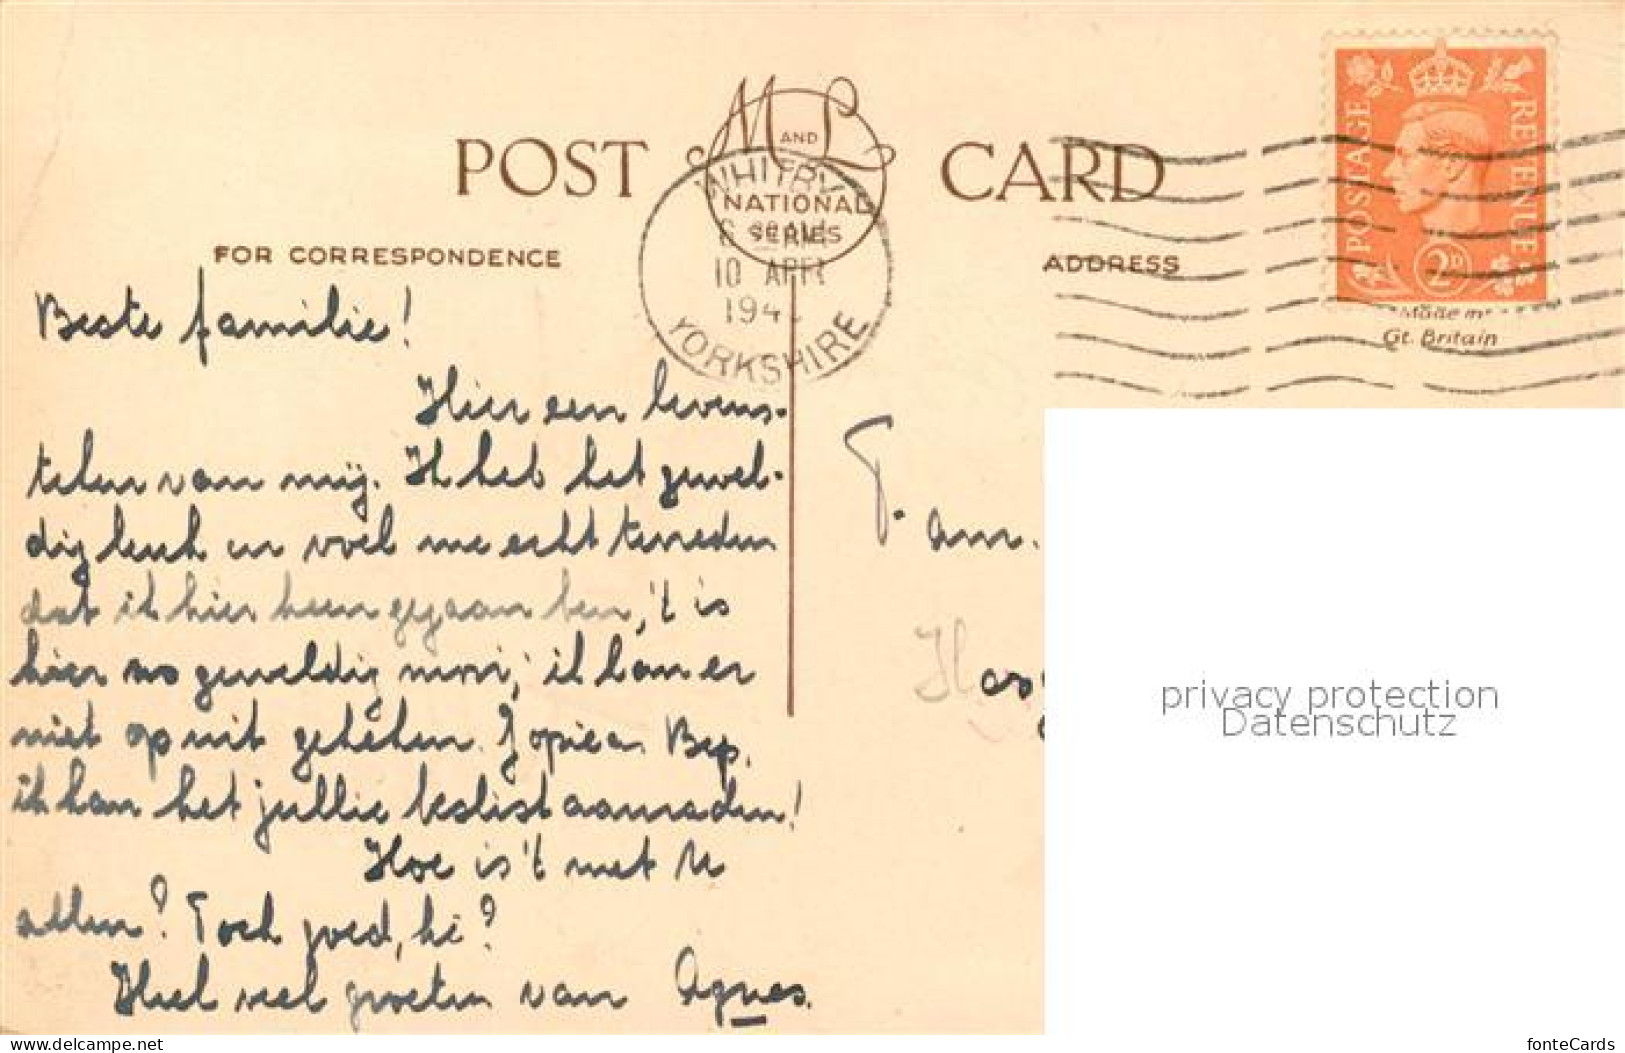 POST CARD
M AND L
NATIONAL
SERIES
WHITBY
10 AP
194
YORKSHIRE
POSTAGE
REVENUE
2D
FOR CORRESPONDENCE
ADDRESS
Made in
Gt. Britain
Beste familie!
Hier een levens-
teken van mij. Ik heb het gewel-
dig leuk en voel me echt tevreden
dat ik hier heen gegaan ben, 't is
hier zo geweldig mooi, ik kan er
niet op uit gekeken. Jopie en Bep,
ik kan het jullie beslist aanraden!
Hoe is 't met U
allen? Toch goed, hè?
Heel veel groeten van Agnes.
am.
privacy protection
Datenschutz
www.delcampe.net
fonteCards